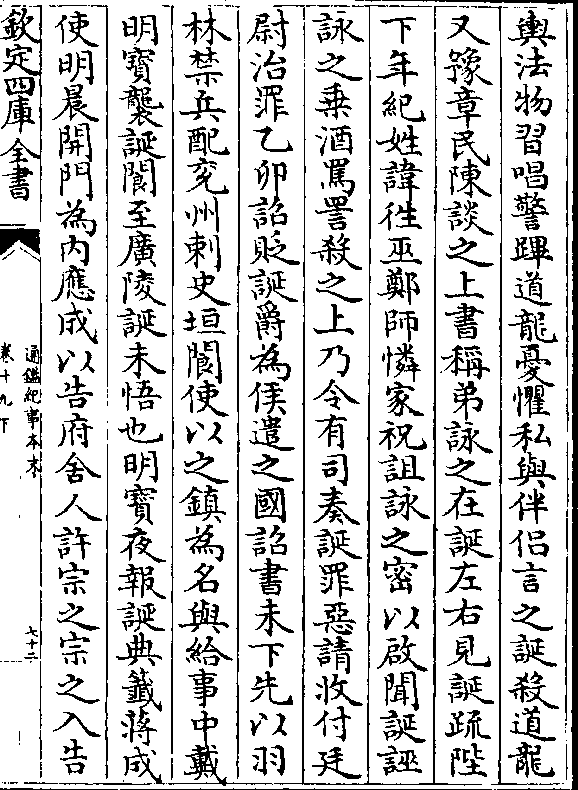 輿法物習唱警蹕道龍憂懼私與伴侣言之誕殺道龍
又豫章民陳談之上書稱弟詠之在誕左右見誕疏陛
下年紀姓諱徃巫鄭師憐家祝詛詠之密以啟聞誕誣
詠之乗酒罵詈殺之上乃令有司奏誕罪惡請收付廷
尉治罪乙卯詔貶誕爵為侯遣之國詔書未下先以羽
林禁兵配兖州刺史垣閬使以之鎮為名與給事中戴
明寳襲誕閬至廣陵誕未悟也明寳夜報誕典籖蔣成
使明晨開門為内應成以告府舍人許宗之宗之入告
欽定四庫全書
通鑑紀事本末
卷十九下
七十二